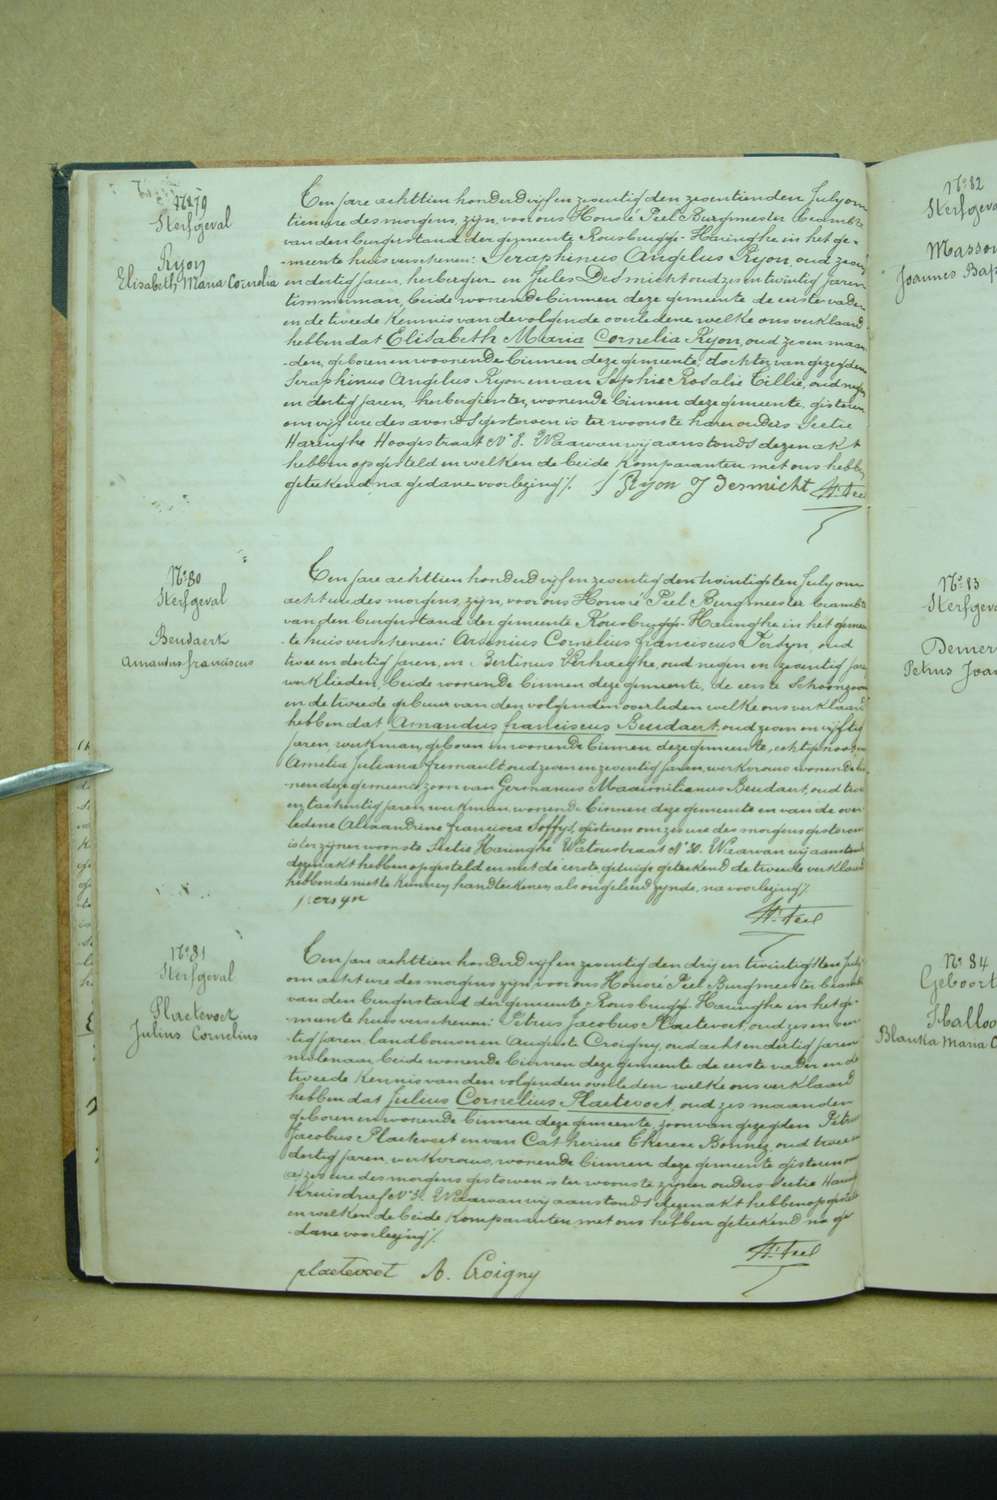 N° 79
Sterfgeval
Ryon
Elisabeth Maria Cornelia
Ten jare achttien honderd vijf en zeventig den zeventienden July om
tien ure des morgens, zijn, voor ons Honoré Peel Burgmeester beambte
van den burgerstand der gemeente Rousbrugge-Haringhe in het ge-
-meente huis verschenen: Seraphinus Angelus Ryon, oud zeven
en dertig jaren, herbergier en Jules Desmicht oud zes en twintig jaren
timmerman, beide wonende binnen deze gemeente de eerste vader
en de tweede kennis van de volgende overledene welke ons verklaard
hebben dat Elisabeth Maria Cornelia Ryon, oud zeven maan-
-den, geboren en woonende binnen deze gemeente, dochter van gezegden
Seraphinus Angelus Ryon en van Sophie Rosalie Tillie, oud negen
en dertig jaren, herbergierster, wonende binnen deze gemeente, gisteren
om vijf ure des avonds gestorven is ter woonste harer ouders Sectie
Haringhe Hoogestraat N° 8. Waarvan wij aanstonds dezen akt
hebben opgesteld en welken de beide komparanten met ons hebben
geteekend, na gedane voorlezing ./.
S Ryon J Desmicht H. Peel
N° 80
Sterfgeval
Beudaert
Amandus franciscus
Ten jare achttien honderd vijf en zeventig den twintigsten July om
acht ure des morgens, zijn, voor ons Honoré Peel Burgmeester beambte
van den burgerstand der gemeente Rousbrugge-Haringhe in het gemeen
-te huis verschenen: Arsenius Cornelius franciscus Persyn, oud
twee en dertig jaren, en Bertinus Verhaeghe, oud negen en zeventig jaren
werklieden, beide wonende binnen deze gemeente, de eerste Schoonzoon
en de tweede gebuur van den volgenden overleden welke ons verklaard
hebben dat Amandus franciscus Beudaert, oud zeven en vijftig
jaren, werkman, geboren en woonende binnen deze gemeente, echtgenoot van
Amelia Juliana fremault oud zeven en zeventig jaren, werkvrouw wonende bin-
-nen deze gemeente, zoon van Germanus Maximilianus Beudaert, oud twee
en tachentig jaren, werkman, wonende binnen deze gemeente en van de over-
ledene Alexandrine francisca Soffys, gisteren om zes ure des morgens gestorven
is ter zijner woonste Sectie Haringhe Watoustraat N° 20. Waarvan wij aanstonds
dezen akt hebben opgesteld en met de eerste getuige geteekend de tweede verklaard
hebbende niet te kunnen handteekenen als ongeleerd zynde, na voorlezing ./.
Persyn
H. Peel
N° 81
Sterfgeval
Plaetevoet
Julius Cornelius
Ten jare achttien honderd vijf en zeventig den drij en twintigsten July
om acht ure des morgens zijn, voor ons Honoré Peel Burgmeester beambte
van den burgerstand der gemeente Rousbrugge-Haringhe in het ge-
-meente huis verschenen: Petrus Jacobus Plaetevoet, oud zes en veer-
-tig jaren, landbouwer en Auguste Croigny, oud acht en dertig jaren
molenaar, beide wonende binnen deze gemeente de eerste vader en de
tweede kennis van den volgenden overleden welke ons verklaard
hebben dat Julius Cornelius Plaetevoet, oud zes maanden
geboren en wonende binnen deze gemeente, zoon van gezegden Petrus
Jacobus Plaetevoet en van Catherine Therese Bonney, oud twee en
dertig jaren, werkvrouw, wonende binnen deze gemeente gisteren om
zes ure des morgens gestorven is ter woonste zijner ouders Sectie Haringhe
Kruisdreef N° 3. Waarvan wij aanstonds dezen akt hebben opgesteld
en welken de beide komparanten met ons hebben geteekend na ge-
-dane voorlezing ./.
H. Peel
plaetevoet A. Croigny
N° 82
Sterfgeva
Masson
Joannes Bap
N° 83
Sterfgeva
Demer
Petrus Joan
N° 84
Geboort
Blanka Maria C